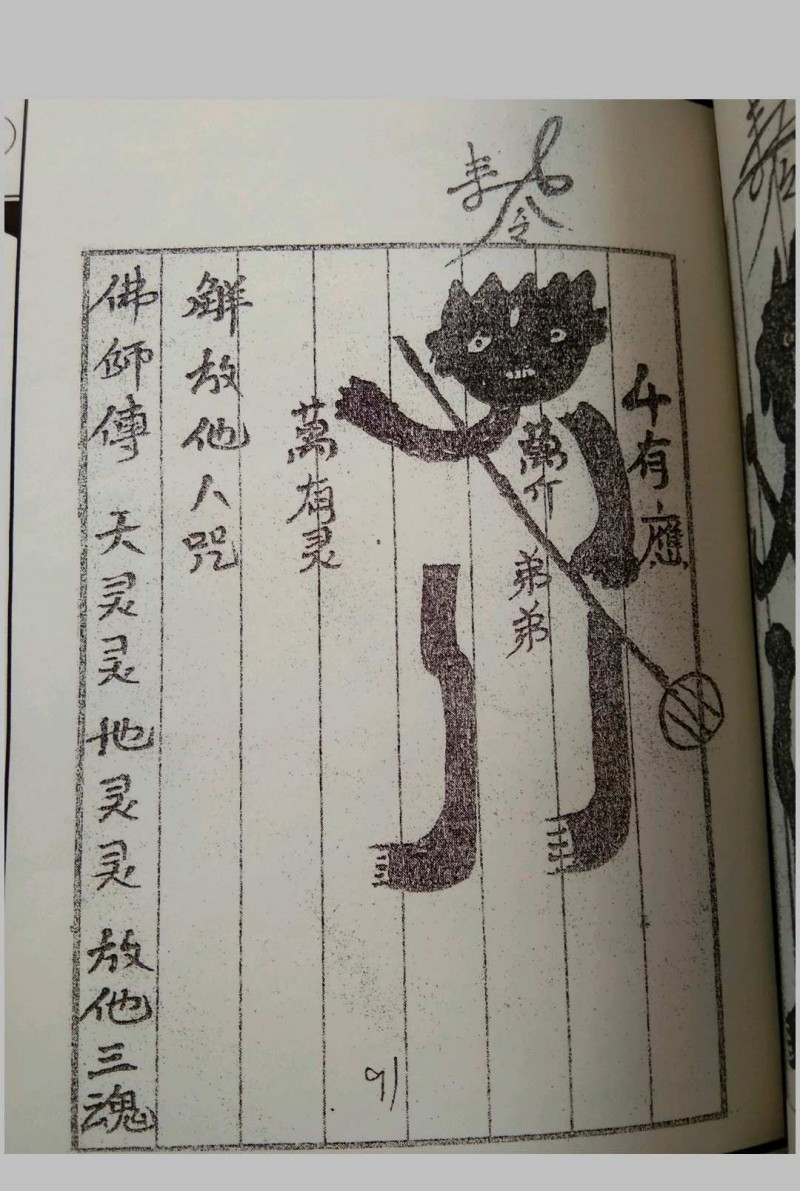 令
千有應
萬
弟弟
萬有灵
解放他人咒
佛師傳 天灵灵 地灵灵 放他三魂